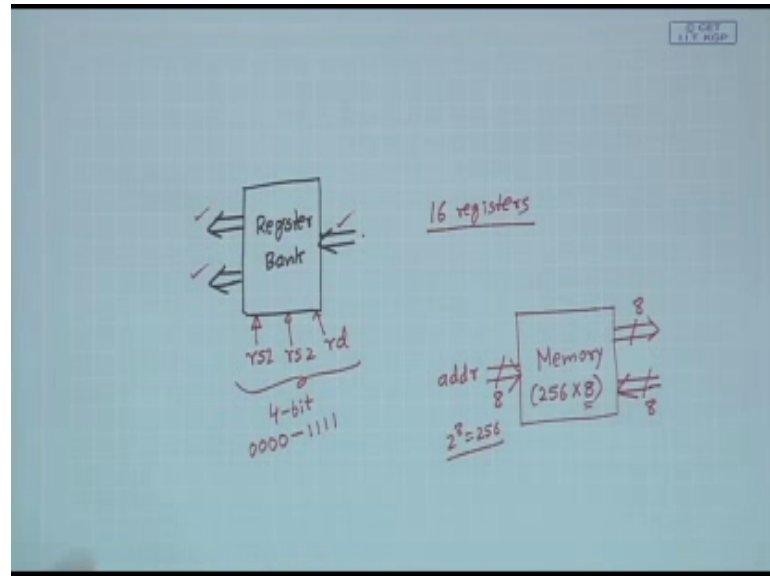 © CET
I.I.T. KGP
Register
Bank
16 registers
rs1 rs2 rd
4-bit
0000-1111
addr
8
Memory
(256 x 8)
8
8
2⁸=256